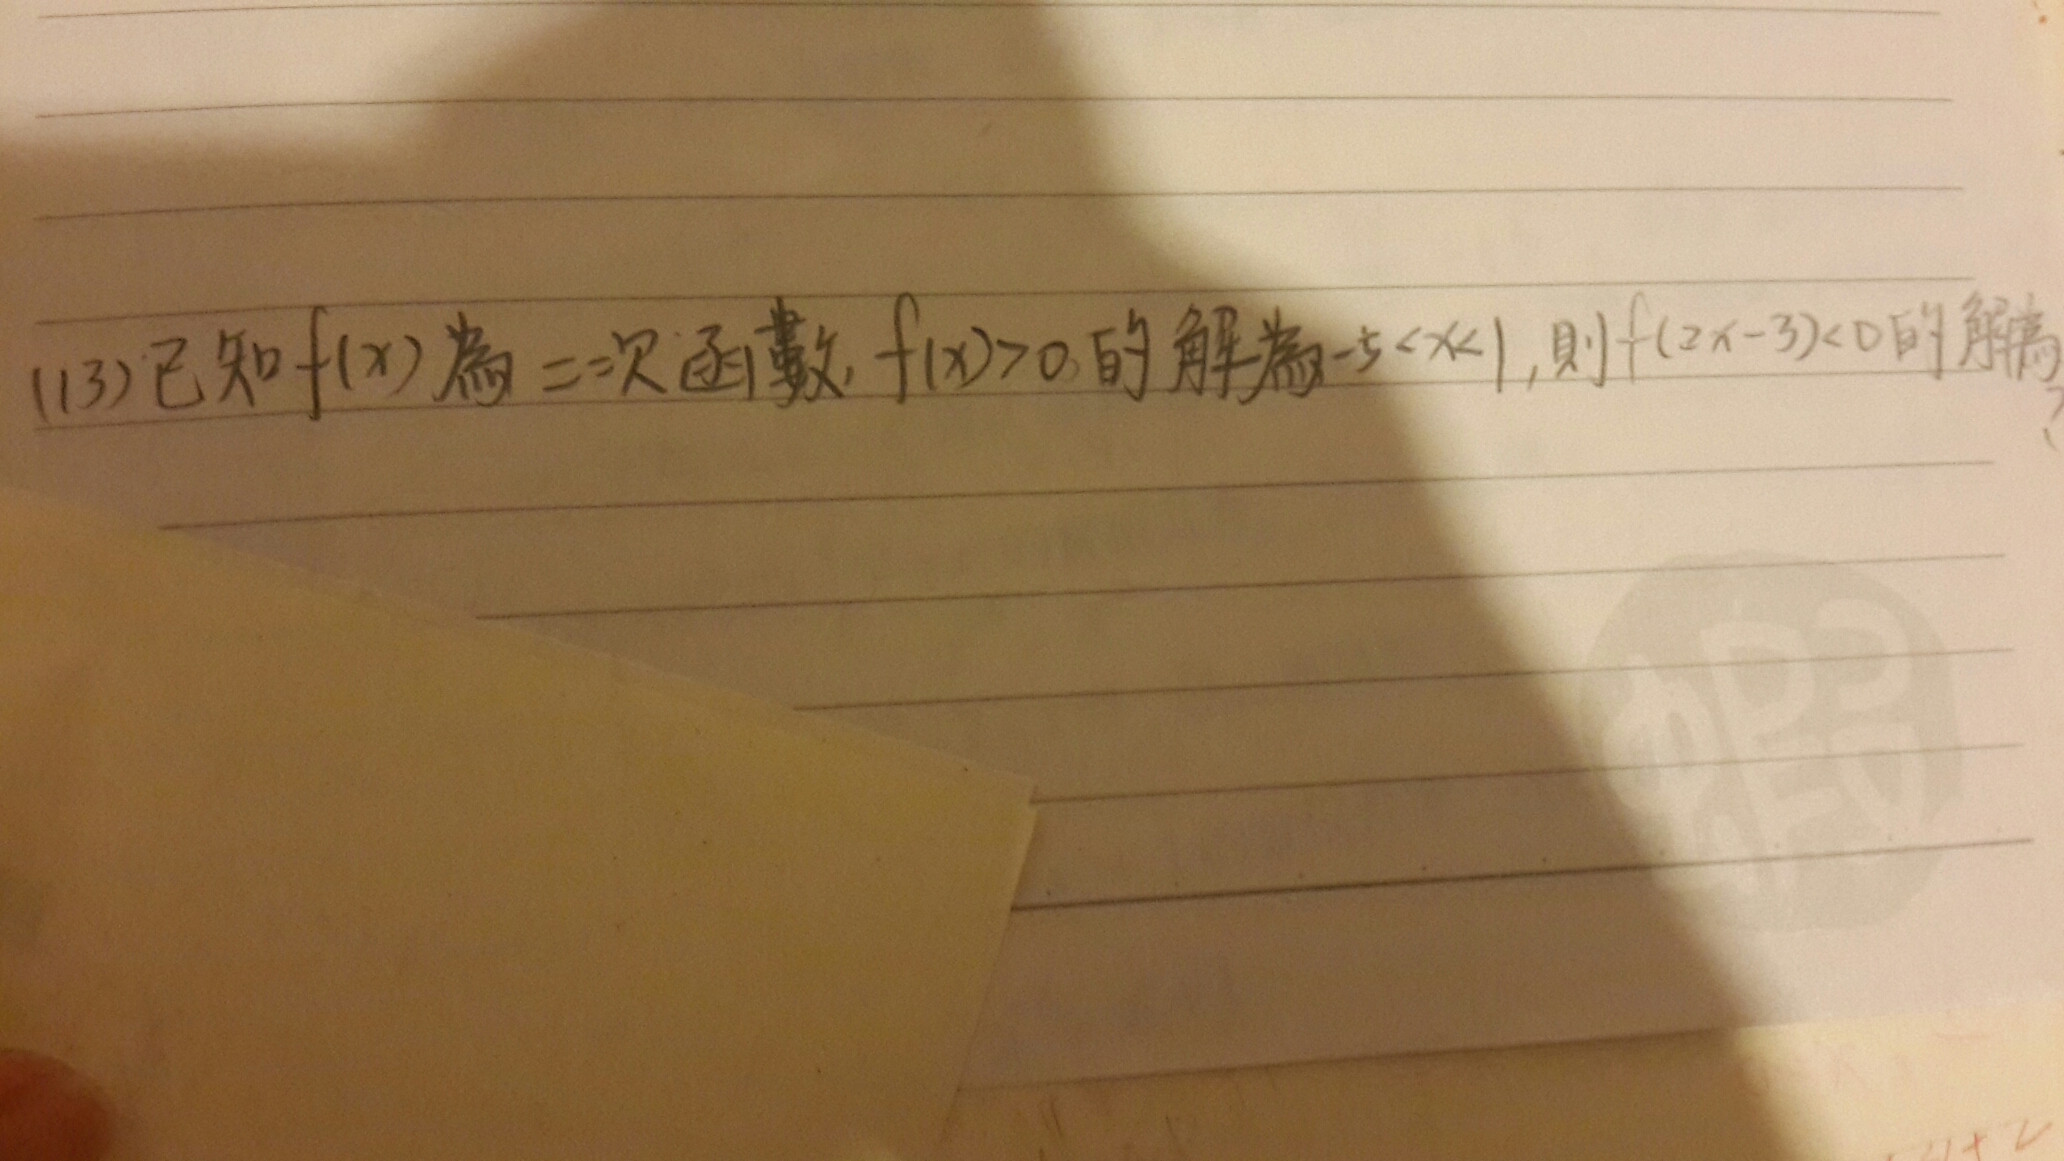 (13)已知f(x)為二次函數,f(x)>0的解為-5<x<1,則f(2x-3)<0的解為?